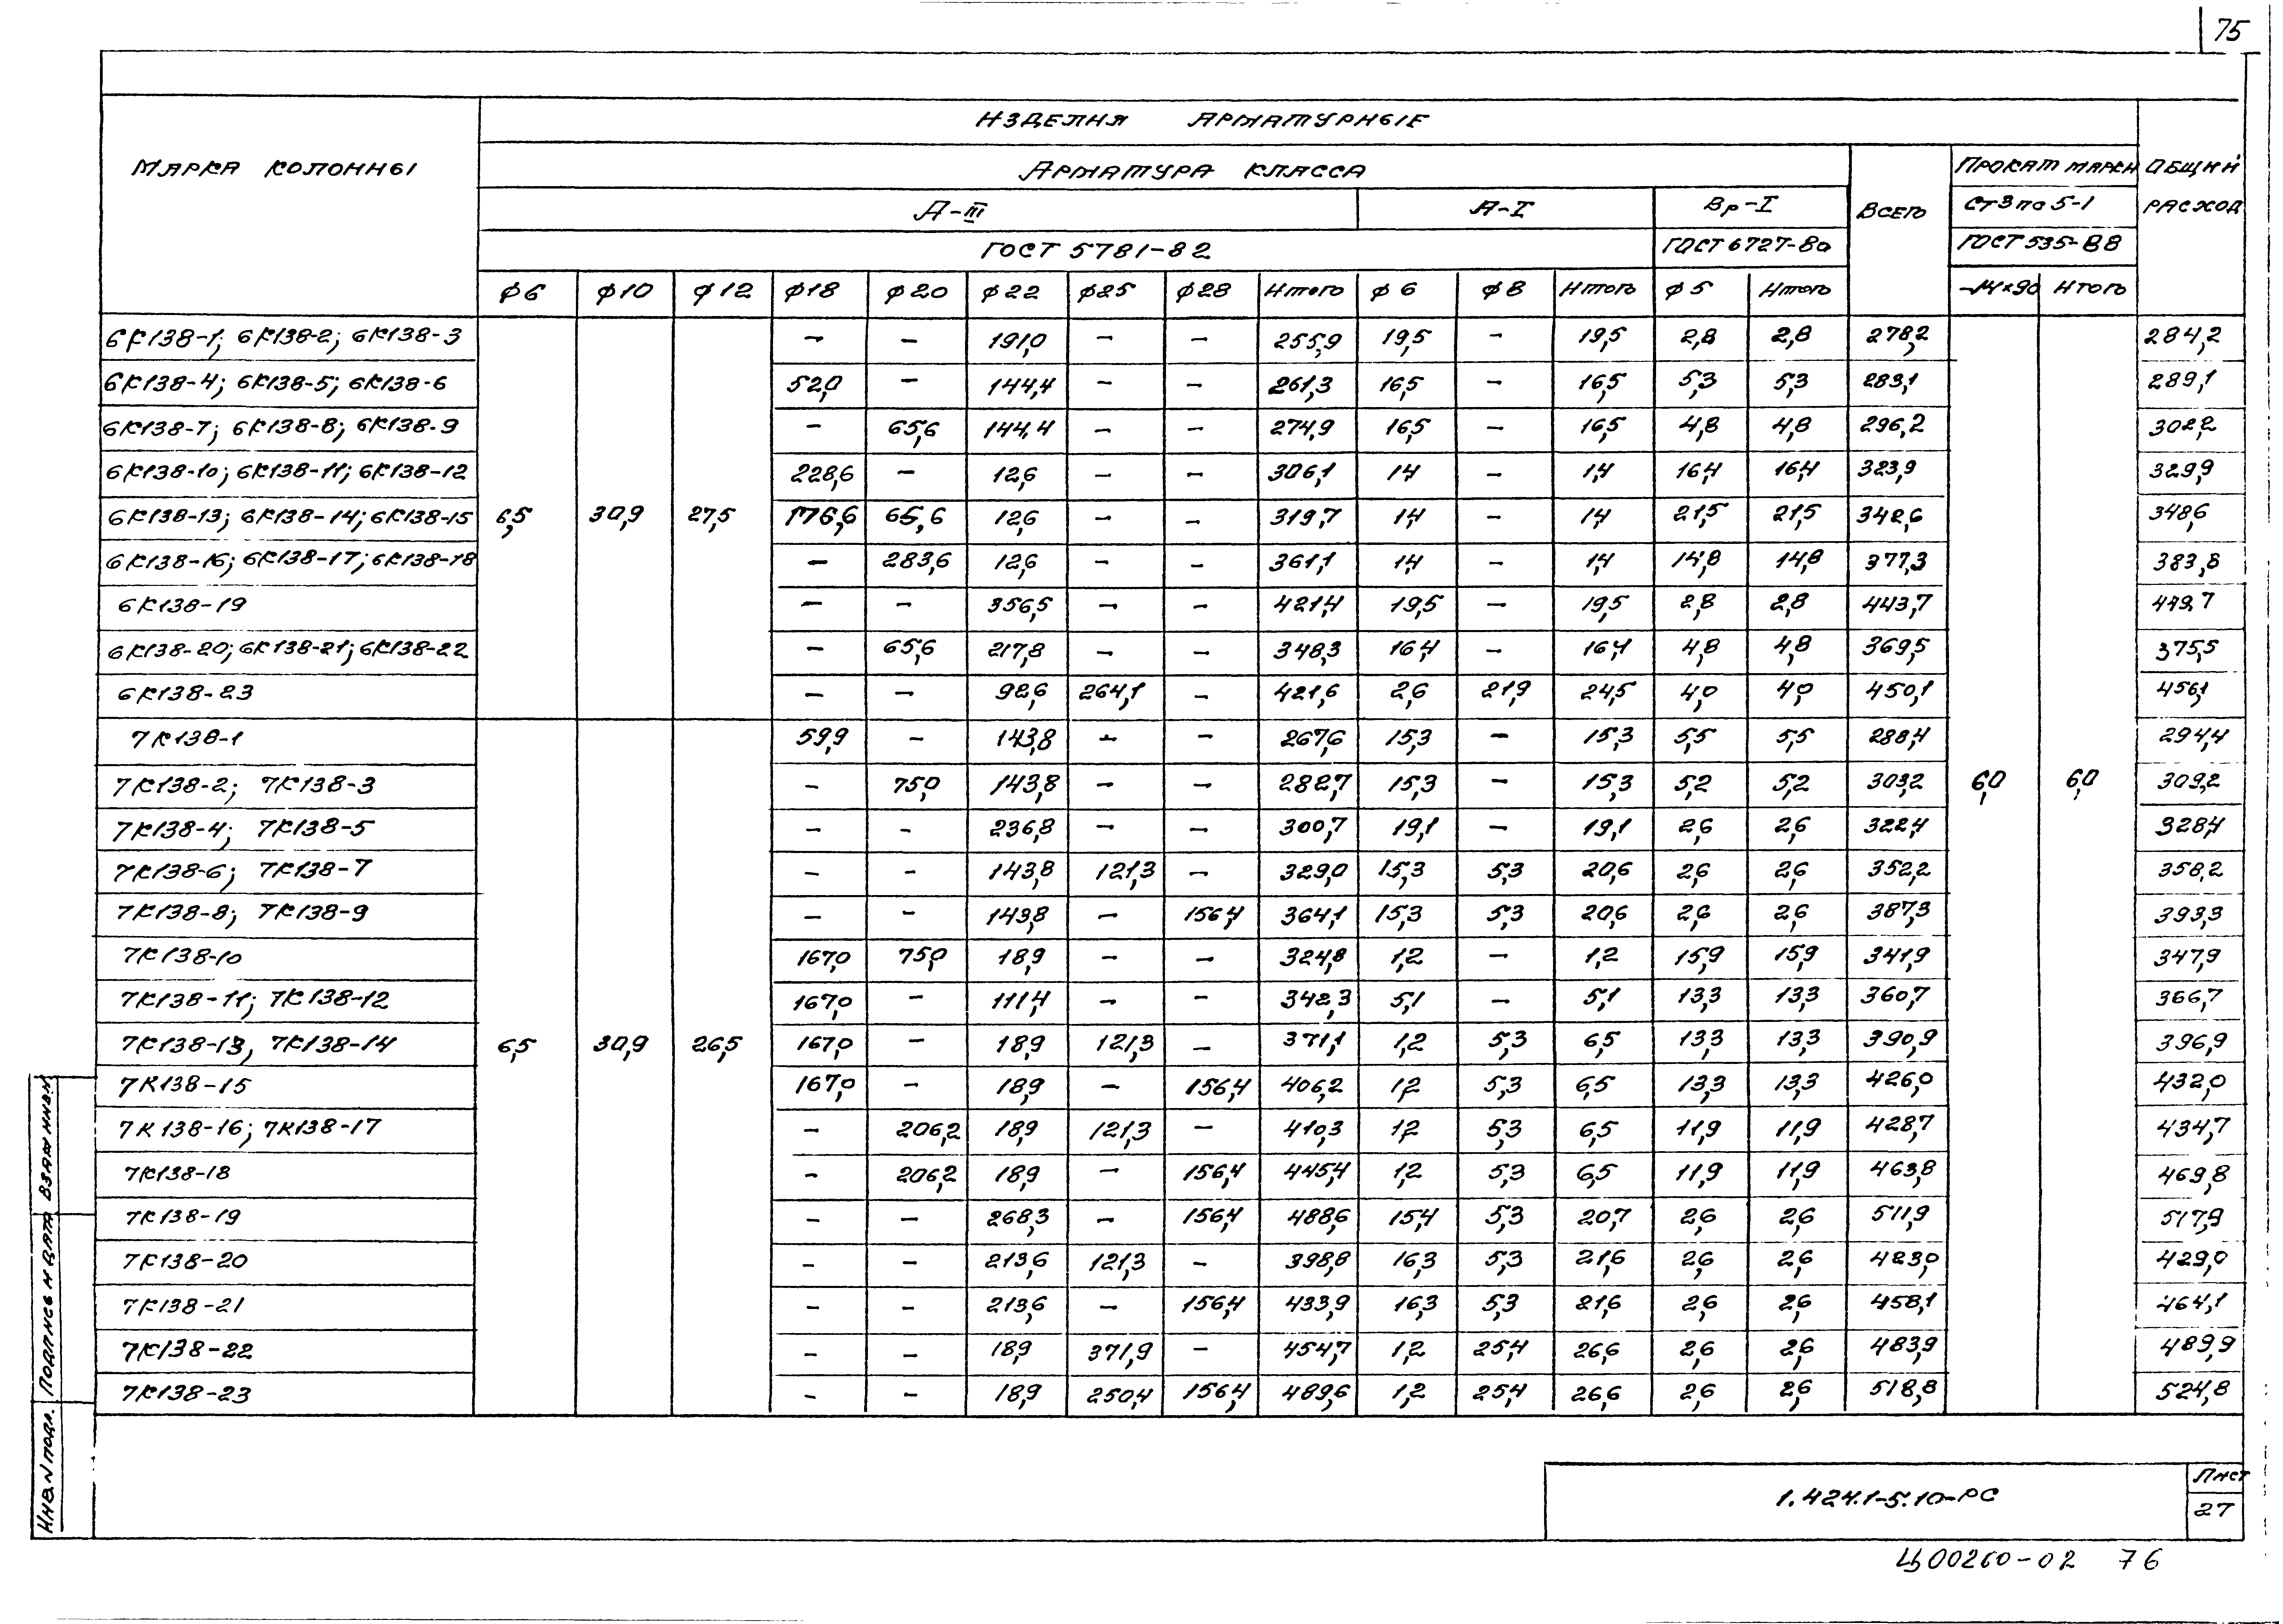 75
ИЗДЕЛИЯ АРМАТУРНЫЕ
МАРКА КОЛОННЫ АРМАТУРА КЛАССА ПРОКАТ МАРКИ ОБЩИЙ
А-III А-I Вр-I ВСЕГО Ст3пс5-1 РАСХОД
ГОСТ 5781-82 ГОСТ 6727-80 ГОСТ 535-88
ф6 ф10 ф12 ф18 ф20 ф22 ф25 ф28 Итого ф6 ф8 Итого ф5 Итого -14×90 Итого
6К138-1; 6К138-2; 6К138-3 – – 191,0 – – 255,9 19,5 – 19,5 2,8 2,8 278,2 284,2
6К138-4; 6К138-5; 6К138-6 52,0 – 144,4 – – 261,3 16,5 – 16,5 5,3 5,3 283,1 289,1
6К138-7; 6К138-8; 6К138-9 – 65,6 144,4 – – 274,9 16,5 – 16,5 4,8 4,8 296,2 302,2
6К138-10; 6К138-11; 6К138-12 228,6 – 12,6 – – 306,1 1,4 – 1,4 16,4 16,4 323,9 329,9
6К138-13; 6К138-14; 6К138-15 6,5 30,9 27,5 176,6 65,6 12,6 – – 319,7 1,4 – 1,4 21,5 21,5 342,6 348,6
6К138-16; 6К138-17; 6К138-18 – 283,6 12,6 – – 361,1 1,4 – 1,4 14,8 14,8 377,3 383,8
6К138-19 – – 356,5 – – 421,4 19,5 – 19,5 2,8 2,8 443,7 449,7
6К138-20; 6К138-21; 6К138-22 – 65,6 217,8 – – 348,3 16,4 – 16,4 4,8 4,8 369,5 375,5
6К138-23 – – 92,6 264,1 – 421,6 2,6 21,9 24,5 4,0 4,0 450,1 456,1
7К138-1 59,9 – 143,8 – – 267,6 15,3 – 15,3 5,5 5,5 288,4 294,4
7К138-2; 7К138-3 – 75,0 143,8 – – 282,7 15,3 – 15,3 5,2 5,2 303,2 6,0 6,0 309,2
7К138-4; 7К138-5 – – 236,8 – – 300,7 19,1 – 19,1 2,6 2,6 322,4 328,4
7К138-6; 7К138-7 – – 143,8 121,3 – 329,0 15,3 5,3 20,6 2,6 2,6 352,2 358,2
7К138-8; 7К138-9 – – 143,8 – 156,4 364,1 15,3 5,3 20,6 2,6 2,6 387,3 393,3
7К138-10 167,0 75,0 18,9 – – 324,8 1,2 – 1,2 15,9 15,9 341,9 347,9
7К138-11; 7К138-12 167,0 – 111,4 – – 342,3 5,1 – 5,1 13,3 13,3 360,7 366,7
7К138-13, 7К138-14 6,5 30,9 26,5 167,0 – 18,9 121,3 – 371,1 1,2 5,3 6,5 13,3 13,3 390,9 396,9
7К138-15 167,0 – 18,9 – 156,4 406,2 1,2 5,3 6,5 13,3 13,3 426,0 432,0
7К138-16; 7К138-17 – 206,2 18,9 121,3 – 410,3 1,2 5,3 6,5 11,9 11,9 428,7 434,7
7К138-18 – 206,2 18,9 – 156,4 445,4 1,2 5,3 6,5 11,9 11,9 463,8 469,8
7К138-19 – – 268,3 – 156,4 488,6 15,4 5,3 20,7 2,6 2,6 511,9 517,9
7К138-20 – – 213,6 121,3 – 398,8 16,3 5,3 21,6 2,6 2,6 423,0 429,0
7К138-21 – – 213,6 – 156,4 433,9 16,3 5,3 21,6 2,6 2,6 458,1 464,1
7К138-22 – – 18,9 371,9 – 454,7 1,2 25,4 26,6 2,6 2,6 483,9 489,9
7К138-23 – – 18,9 250,4 156,4 489,6 1,2 25,4 26,6 2,6 2,6 518,8 524,8
ИНВ.N ПОДЛ. ПОДПИСЬ И ДАТА ВЗАМ ИНВ.N
1.424.1-5.10-РС
Лист
27
Ц00260-02 76